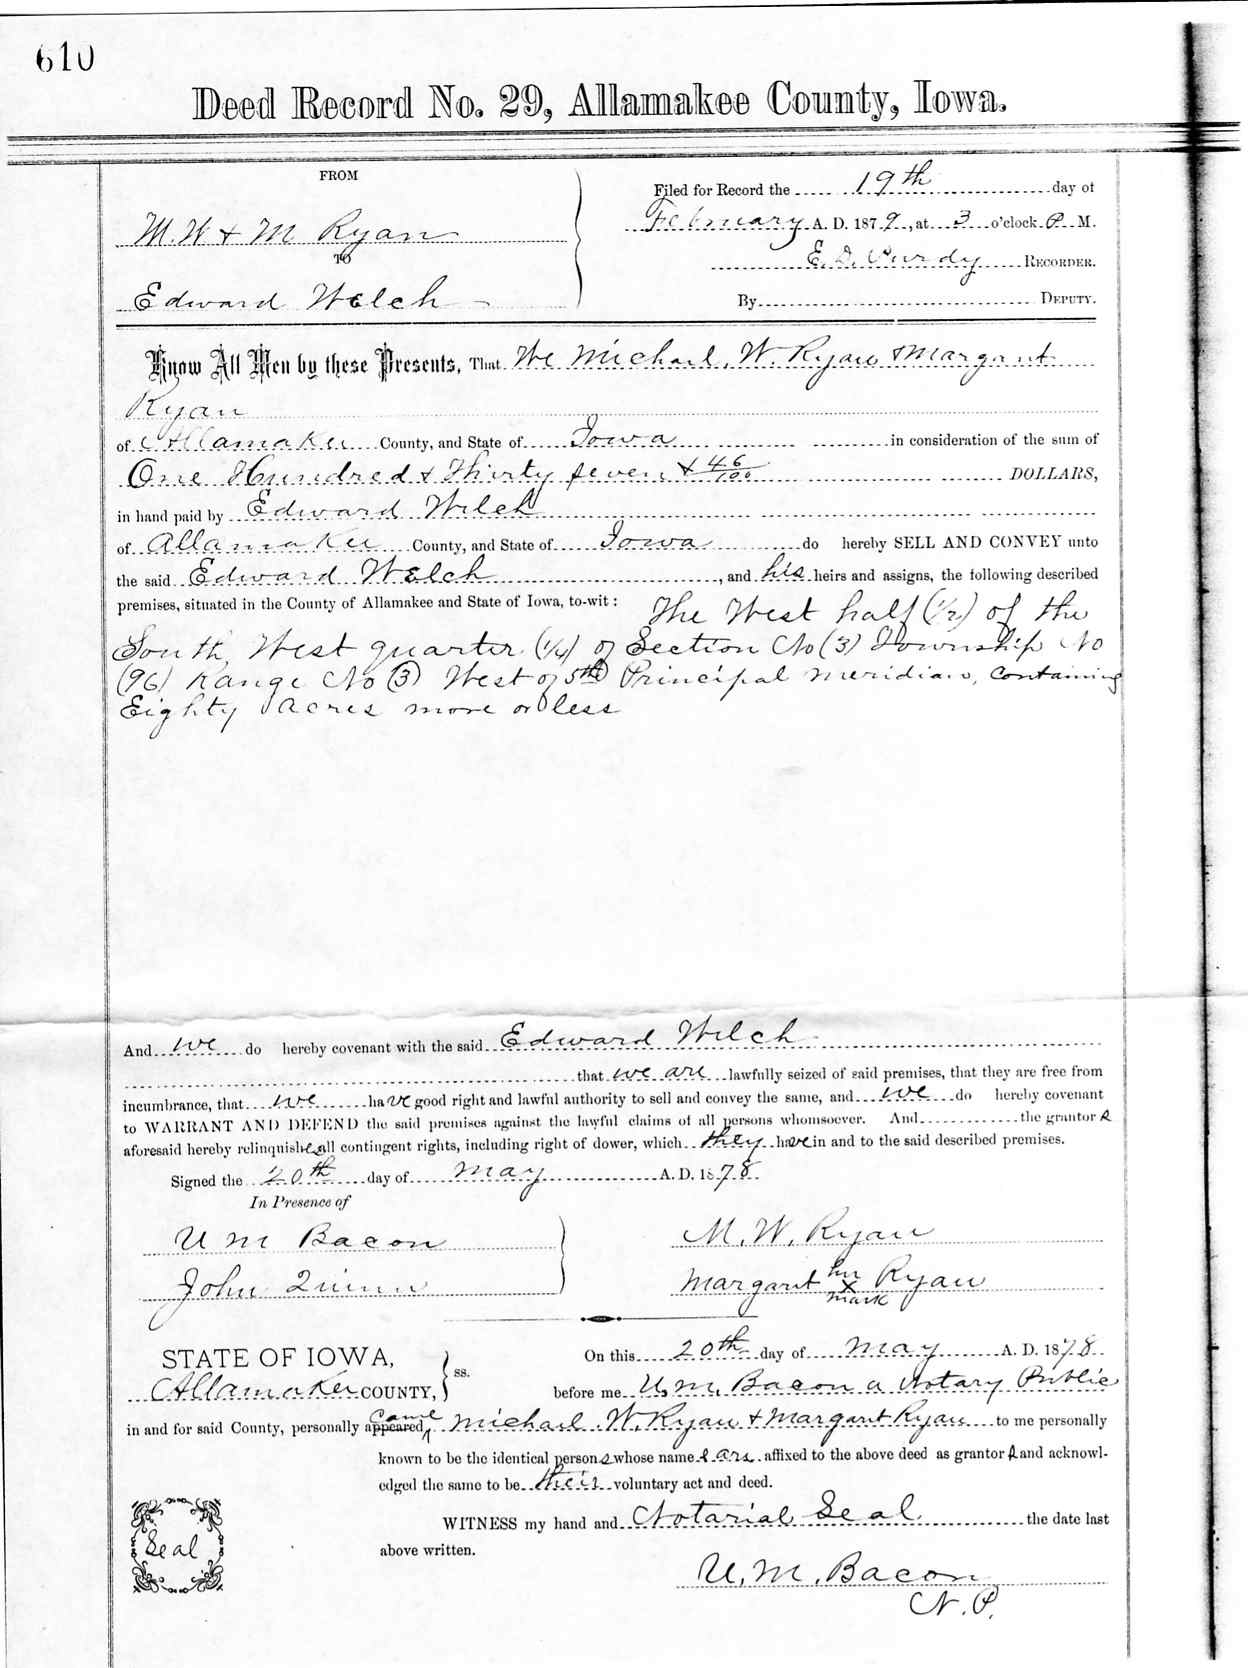 610
Deed Record No. 29, Allamakee County, Iowa.
FROM
M. W & M Ryan
TO
Edward Welch
Filed for Record the 19th day of
February A. D. 1879, at 3 o'clock P M.
E. D. Purdy RECORDER.
By DEPUTY.
Know All Men by these Presents, That We Michael W. Ryan & Margaret
Ryan
of Allamakee County, and State of Iowa in consideration of the sum of
One Hundred & Thirty seven & 46/100 DOLLARS,
in hand paid by Edward Welch
of Allamakee County, and State of Iowa do hereby SELL AND CONVEY unto
the said Edward Welch, and his heirs and assigns, the following described
premises, situated in the County of Allamakee and State of Iowa, to-wit: The West half (1/2) of the
South West quarter (1/4) of Section No (3) Township No
(96) Range No (3) West of 5th Principal Meridian, containing
Eighty Acres more or less
And we do hereby covenant with the said Edward Welch
that we are lawfully seized of said premises, that they are free from
incumbrance, that we have good right and lawful authority to sell and convey the same, and we do hereby covenant
to WARRANT AND DEFEND the said premises against the lawful claims of all persons whomsoever. And the grantors
aforesaid hereby relinquishes all contingent rights, including right of dower, which they have in and to the said described premises.
Signed the 20th day of May A. D. 1878
In Presence of
U M Bacon
John Quinn
M. W. Ryan
Margaret her X mark Ryan
STATE OF IOWA,
Allamakee COUNTY, ss.
On this 20th day of May A. D. 1878
before me U. M. Bacon a Notary Public
in and for said County, personally appeared came Michael W. Ryan & Margaret Ryan to me personally
known to be the identical persons whose names are affixed to the above deed as grantors and acknowl-
edged the same to be their voluntary act and deed.
WITNESS my hand and Notarial Seal the date last
above written.
Seal
U. M. Bacon
N. P.